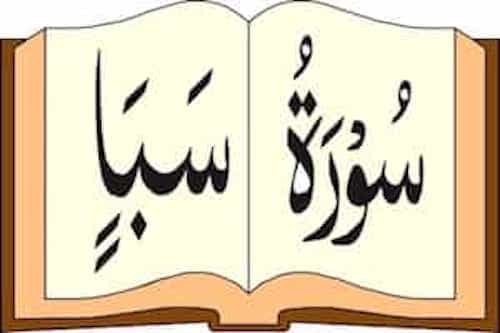 سُوْرَةُ سَبَاٍ